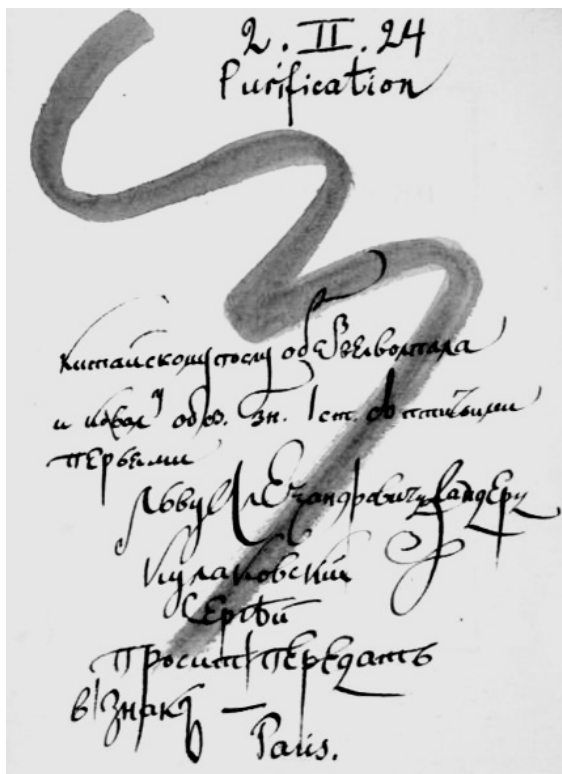 2. II. 24
Purification
Китайскому послу обезвелволпала
и кавал. обез. зн. I ст. с птичьими
перьями
Льву Александровичу Зандеру
Кулаковский
Сергей
просит передать
в знак —
Paris.